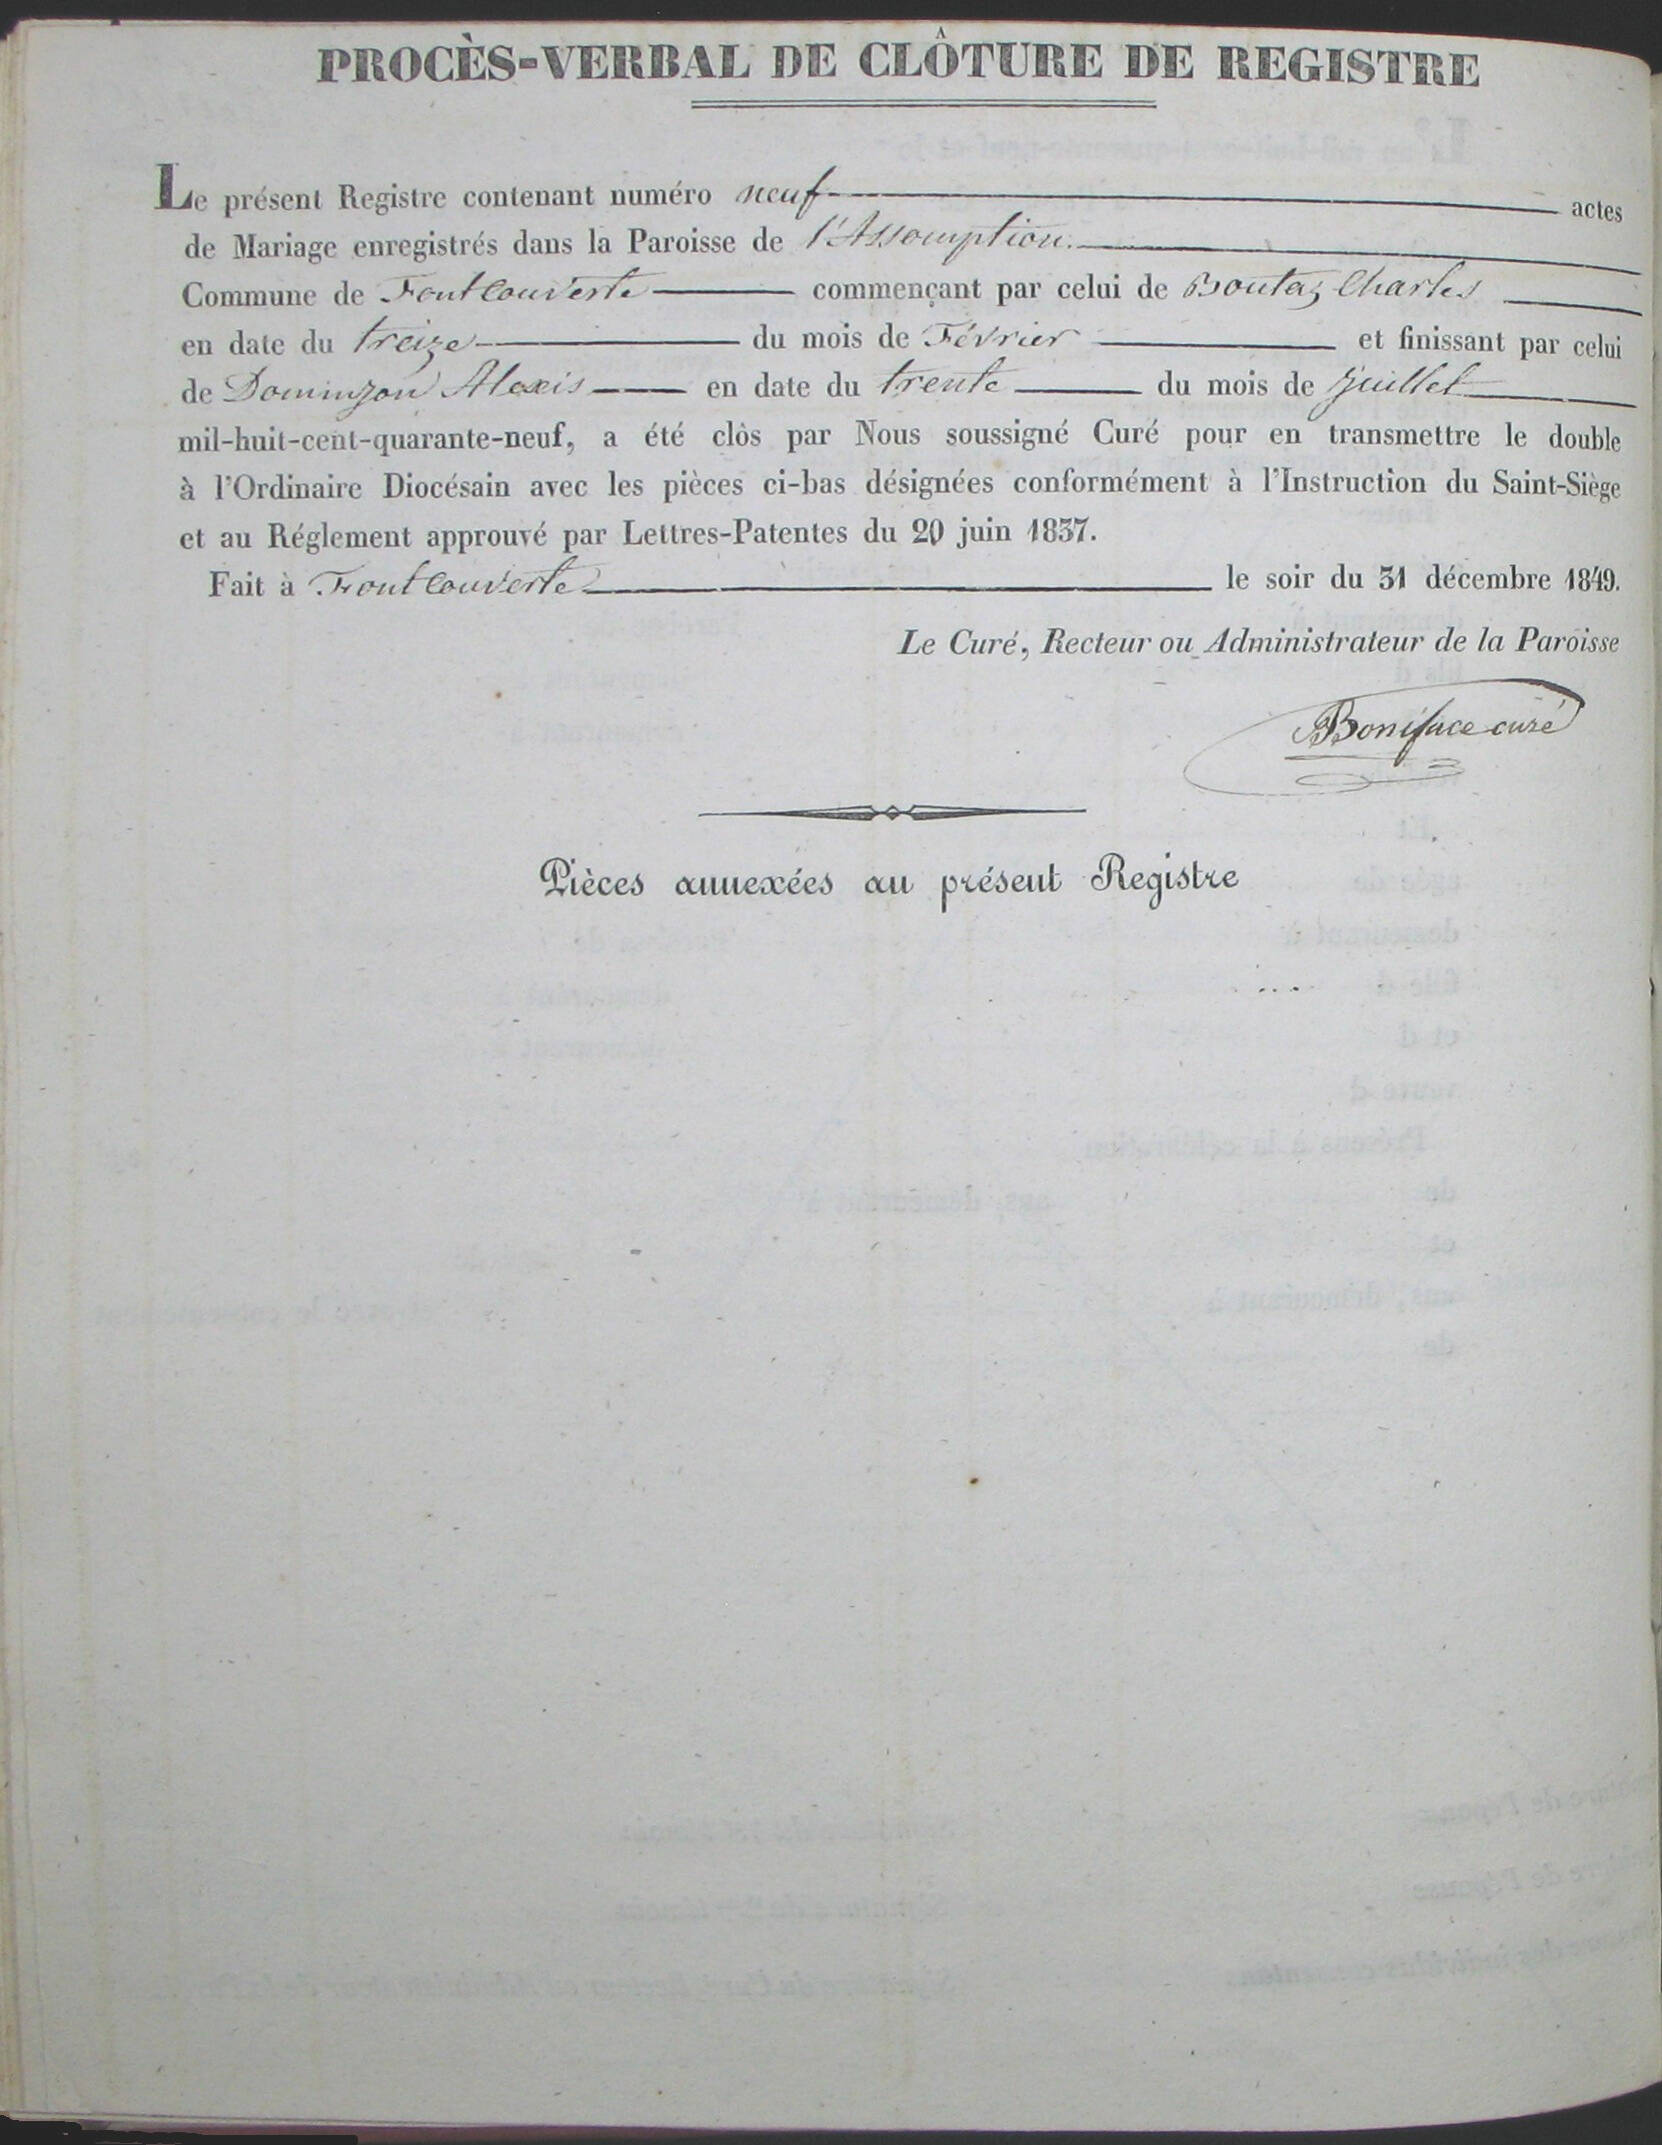 PROCÈS-VERBAL DE CLÔTURE DE REGISTRE
Le présent Registre contenant numéro neuf actes
de Mariage enregistrés dans la Paroisse de l'Assomption.
Commune de Fontcouverte commençant par celui de Boutaz Charles
en date du treize du mois de Février et finissant par celui
de Dominjon Alexis en date du trente du mois de juillet
mil-huit-cent-quarante-neuf, a été clos par Nous soussigné Curé pour en transmettre le double
à l'Ordinaire Diocésain avec les pièces ci-bas désignées conformément à l'Instruction du Saint-Siège
et au Réglement approuvé par Lettres-Patentes du 20 juin 1837.
Fait à Fontcouverte le soir du 31 décembre 1849.
Le Curé, Recteur ou Administrateur de la Paroisse
Boniface curé
Pièces annexées au présent Registre